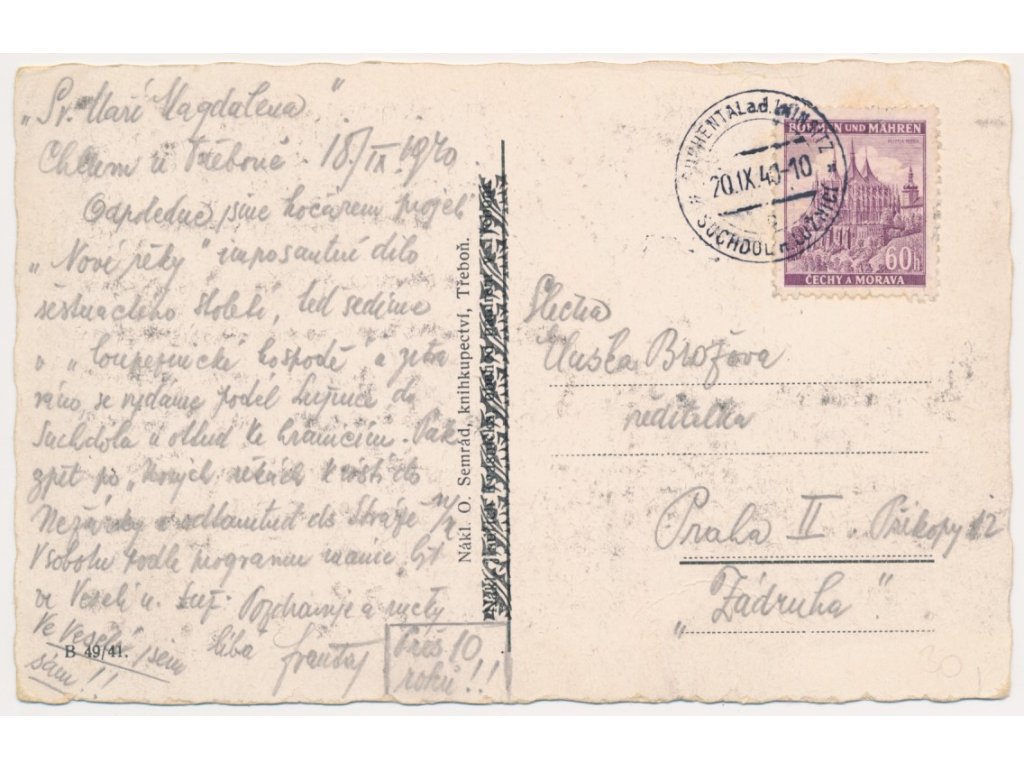 „Sv. Maří Magdalena"
Chlum u Třeboně. 18/IX 1940
Odpoledne jsme kočárem projeli
„Nové řeky" imposantní dílo
šestnáctého století, teď sedíme
v "loupežnické hospodě" a zítra
ráno se vydáme podél Lužnice do
Suchdola a odtud ke hranicím. Pak
zpět po „Nových řekách k ústí do
Nežárky a odtamtud do Stráže n/N
V sobotu podle programu máme být
ve Veselí n. Luž. Pozdravuje a ruce
líbá
Ve Veselí jsem
sám!!
Příš 10
roků!!
B 49/41.
Nákl. O. Semrád, knihkupectví, Třeboň.
SUCHENTAL a.d. LAINSITZ
20.IX.40-10
SUCHDOL n. LUŽNICÍ
BÖHMEN UND MÄHREN
60h
ČECHY A MORAVA
Slečna
Eluška Brožova
ředitelka
Praha II. Příkopy 12
„Zádruha".
30